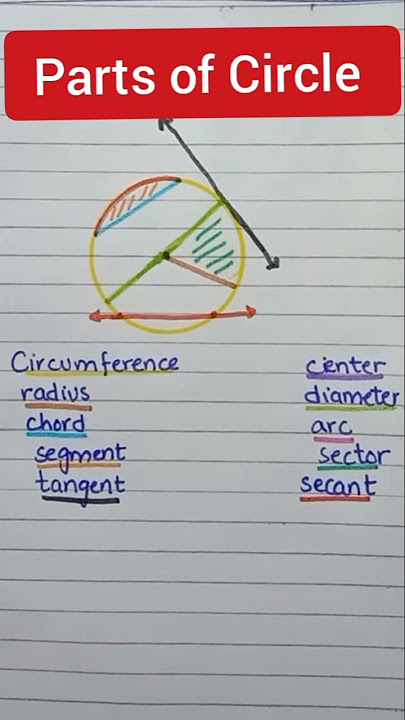 Parts of Circle
Circumference center
radius diameter
chord arc
segment sector
tangent secant